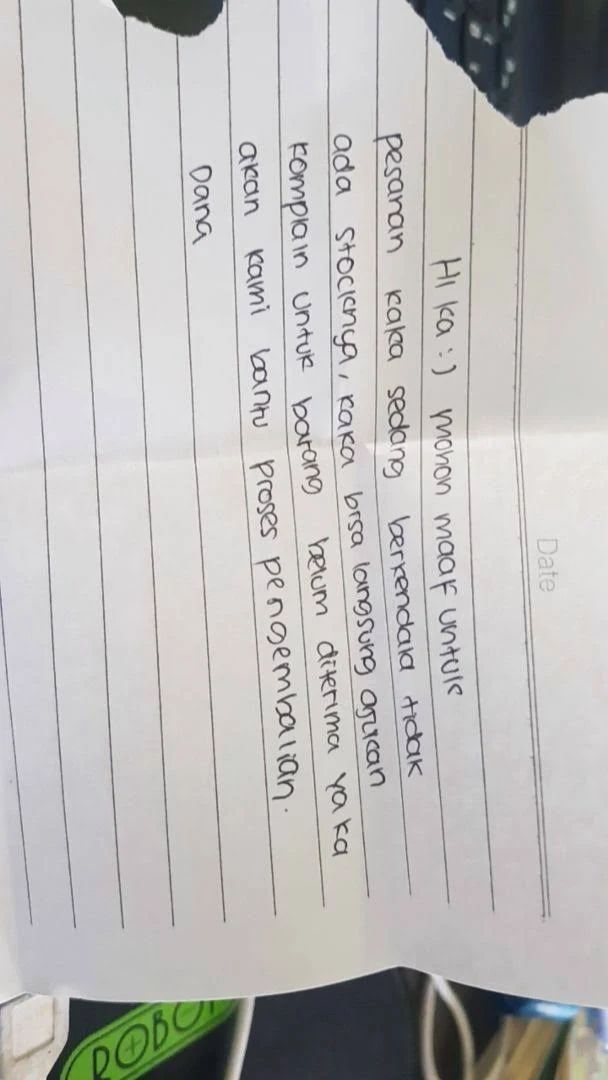 Date
Hi ka :) mohon maaf untuk
pesanan kaka sedang berkendala tidak
ada stocknya, kaka bisa langsung ajukan
komplain untuk barang belum diterima ya ka
akan kami bantu proses pengembalian.
Dana
ROBO